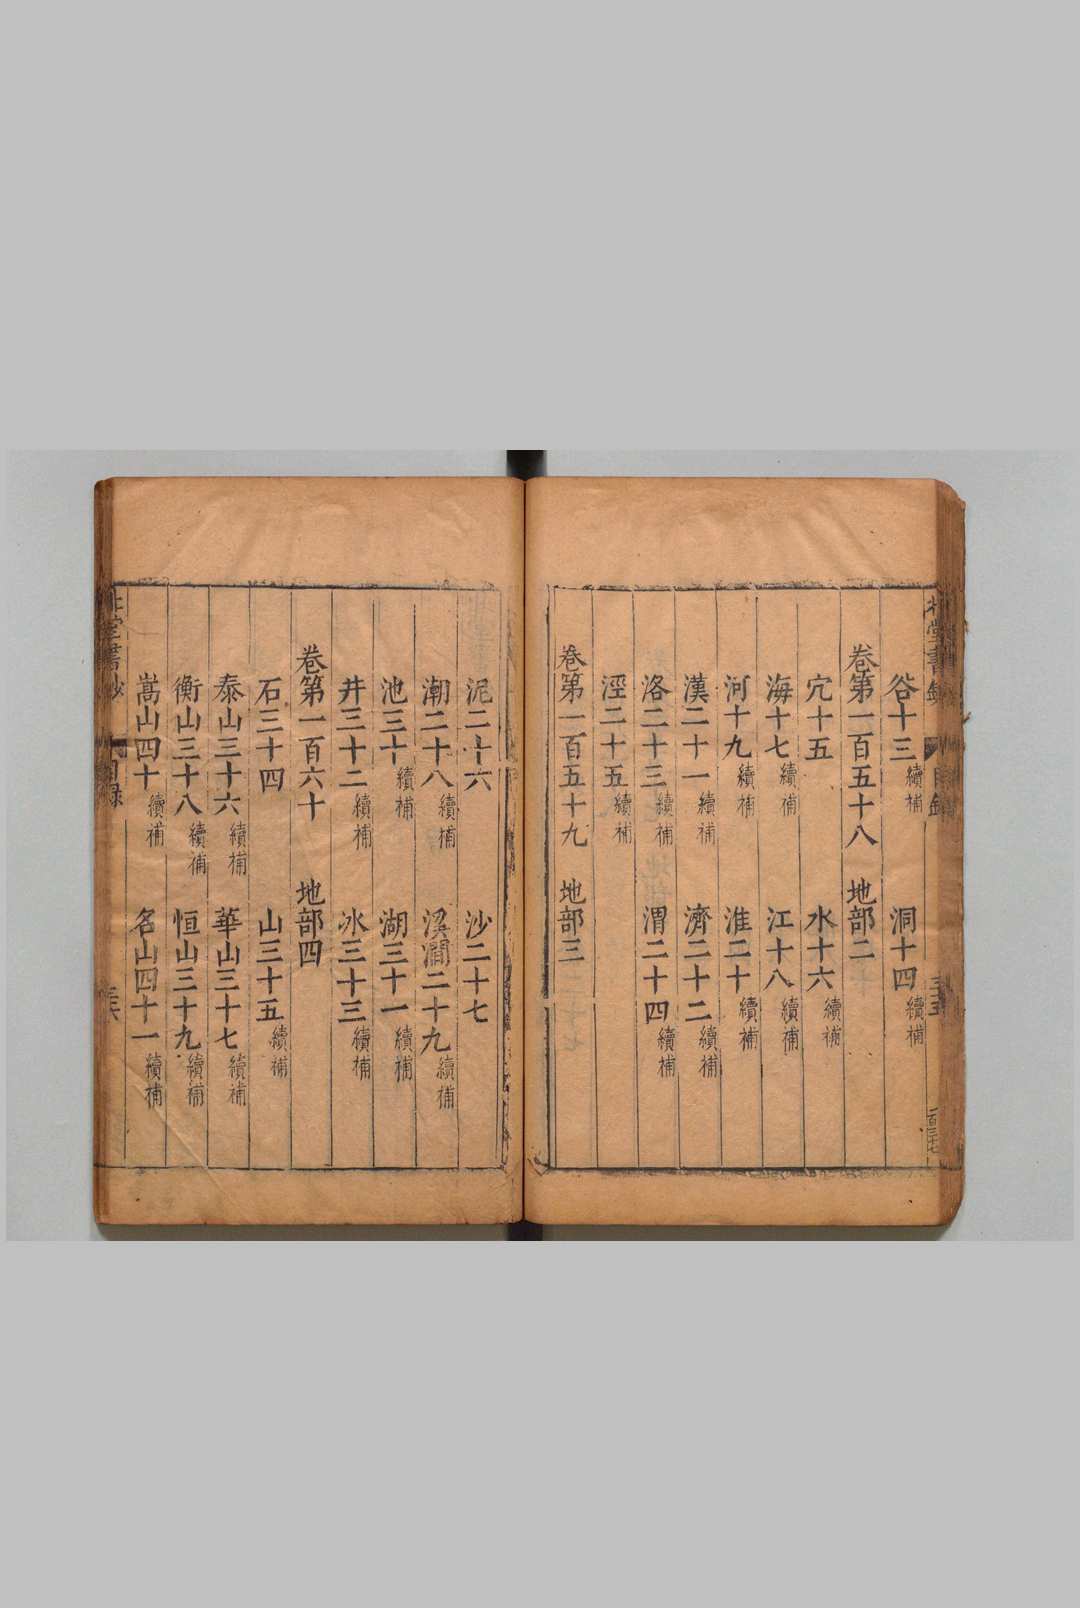 谷十三續補 洞十四續補
卷第一百五十八 地部二
穴十五 水十六續補
海十七續補 江十八續補
河十九續補 淮二十續補
漢二十一續補 濟二十二續補
洛二十三續補 渭二十四續補
涇二十五續補
卷第一百五十九 地部三
泥二十六 沙二十七
潮二十八續補 溪澗二十九續補
池三十續補 湖三十一續補
井三十二續補 冰三十三續補
卷第一百六十 地部四
石三十四 山三十五續補
泰山三十六續補 華山三十七續補
衡山三十八續補 恒山三十九續補
嵩山四十續補 名山四十一續補